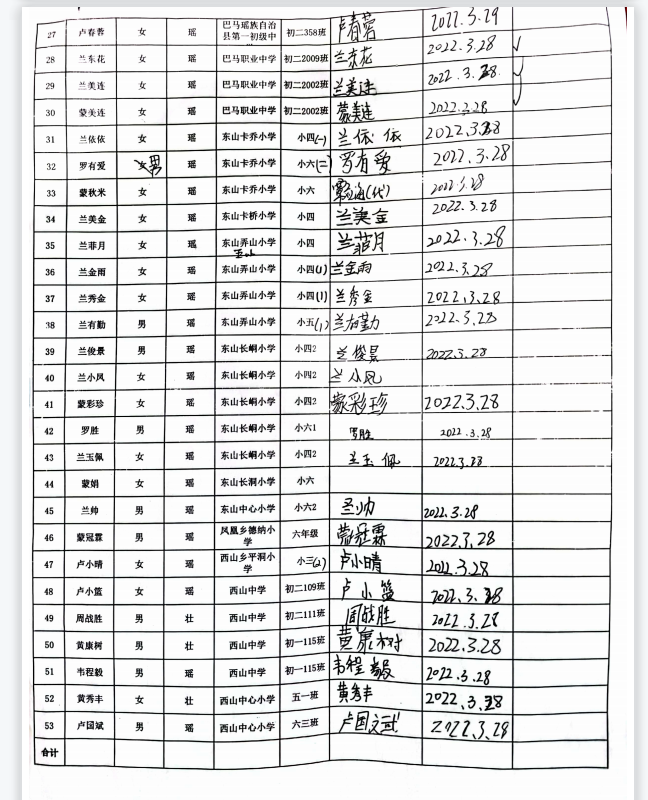 27 卢春蓉 女 瑶 巴马瑶族自治县第一初级中 初二358班 卢春蓉 2022.3.29
28 兰东花 女 瑶 巴马职业中学 初二2009班 兰东花 2022.3.28
29 兰美连 女 瑶 巴马职业中学 初二2002班 兰美连 2022.3.28
30 蒙美连 女 瑶 巴马职业中学 初二2002班 蒙美连 2022.3.28
31 兰依依 女 瑶 东山卡乔小学 小四(一) 兰依依 2022.3.28
32 罗有爱 女男 瑶 东山卡乔小学 小六(二) 罗有爱 2022.3.28
33 蒙秋米 女 瑶 东山卡乔小学 小六 (代) 2022.3.28
34 兰美金 女 瑶 东山卡桥小学 小四 兰美金 2022.3.28
35 兰菲月 女 瑶 东山弄山小学 小四 兰菲月 2022.3.28
36 兰金雨 女 瑶 东山弄山小学 小四(1) 兰金雨 2022.3.28
37 兰秀金 女 瑶 东山弄山小学 小四(1) 兰秀金 2022.3.28
38 兰有勤 男 瑶 东山弄山小学 小五(1) 兰有勤 2022.3.28
39 兰俊景 男 瑶 东山长峒小学 小四2 兰俊景 2022.3.28
40 兰小凤 女 瑶 东山长峒小学 小四2 兰小凤
41 蒙彩珍 女 瑶 东山长峒小学 小四2 蒙彩珍 2022.3.28
42 罗胜 男 瑶 东山长峒小学 小六1 罗胜 2022.3.28
43 兰玉佩 女 瑶 东山长峒小学 小四2 兰玉佩 2022.3.28
44 蒙娟 女 瑶 东山长洞小学 小六
45 兰帅 男 瑶 东山中心小学 小六2 兰帅 2022.3.28
46 蒙冠霖 男 瑶 凤凰乡德纳小学 六年级 蒙冠霖 2022.3.28
47 卢小晴 女 瑶 西山乡平洞小学 小三(2) 卢小晴 2022.3.28
48 卢小篮 女 瑶 西山中学 初二109班 卢小篮 2022.3.28
49 周战胜 男 壮 西山中学 初二111班 周战胜 2022.3.28
50 黄康树 男 壮 西山中学 初一115班 黄康树 2022.3.28
51 韦程毅 男 瑶 西山中学 初一115班 韦程毅 2022.3.28
52 黄秀丰 女 壮 西山中心小学 五一班 黄秀丰 2022.3.28
53 卢国斌 男 瑶 西山中心小学 六三班 卢国斌 2022.3.28
合计